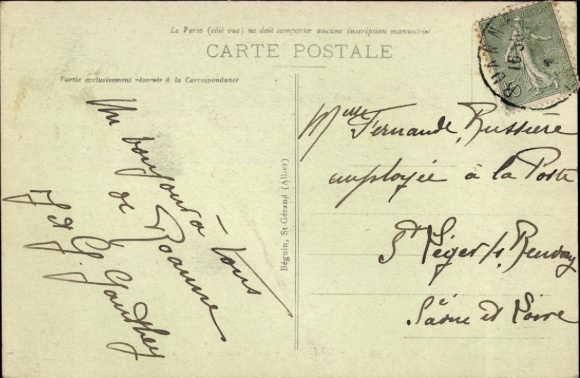 Le Recto (côté vue) ne doit comporter aucune inscription manuscrite
CARTE POSTALE
Partie exclusivement réservée à la Correspondance
Un bonjour à tous
de Roanne
J et G Gauthey
Béguin, St-Gérand (Allier)
ROANNE
Melle Fernande Bussière
employée à la Poste
St Léger s/s Beuvray
Saône et Loire